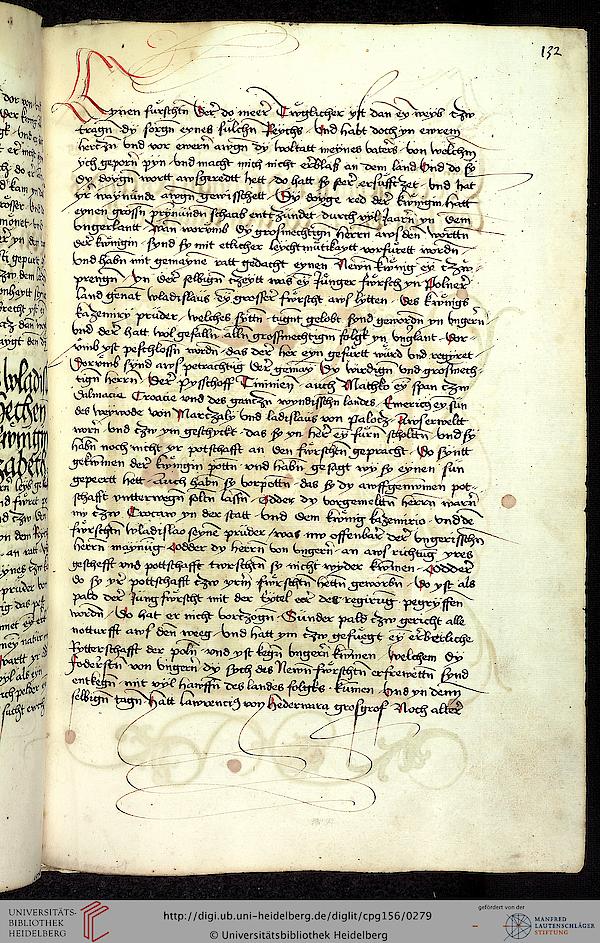 132
Eynen furschtn Der do meer Tuglicher yst dan ey weyb czw
tragn dy sorgn eynes sulchn Reychs Und habt doch yn ewrem
hertzn und vor ewern awgn dy woltatt meynes vaters von welchem
ych geporn pyn und macht mich nicht erblass an dem land Und do sy
dy doygn wortt awsgeredtt hett do hatt sy ser ersufftzet und hat
yr waynunde awgn gewischett Dy doyge red der kunigin hatt
eynen grossn prynundn schaab enttzundet durch vyl Jaarn yn dem
ungerlantt wan worumb dy grosmechtign herrn aws den worttn
der kunigin synd sy mit etlicher leychtmutikaytt vorfurett wordn
und habn mit gemayne ratt gedacht eynen Newn kunig ey czw
prengen yn der selbign czeytt was ey Junger fursch yn Polner
land genat wladislaus ey grosser furscht aws lytten des kunigs
kazemiry pruder welches syttn tugnt gelobt synd gewordn yn ungern
und der hatt wol gefalln alln grossmechtign folgk yn unglant Dor
umb yst peschlossn wordn das der her eyn gefurtt wurd und regiret
Dorumb synd aws petrachtug der gemay Dy wirdign und grosmech
tign herrn Der Pysschoff auch Mathko ey span czw
Dalmacie Croacie und des gantzn wyndisschn landes Emericus ey sun
des weywode von Marczaly und ladislaus von palotz Awserweltt
worn und czw ym geschyckt das sy yn her ey furn scholttn und sy
habn noch nicht yr potschafft an den furschtn gepracht Do synt
gekumen der kunigin pottn und habn gesagt wy sy eynen sun
geperrt hett auch habn sy vorpottn das sy dy awffgenumen pot
schafft untterwegn soltn lassn Odder dy vorgemeltn herrn warn
nw czw Crocaw yn der statt und dem kunig kazemirio und de
furschtn wladislao seyne pruder was nw offenbar der ungerisschn
herrn maynug Odder dy herrn von ungern an aws richtug yres
geschefft und pottschafft torschtn sy nicht wyder kumen Odder
do sy yr pottschafft czw yrm furschtn hettn geworbn Do yst als
pald der Jung furscht mit der eytel eer des regirug pegryffen
wordn Do hat er nicht vorczogn Sunder pald czw gericht alle
notturfft aws den weg und hatt ym czw gefuegt ey erberliche
Rytterschafft der poln und yst kegn ungern kumen welchem dy
foderstn von ungern dy sych des Newn furschtn erfrewttn synd
entkegn mit vyl hawffn des landes folgks kumen Uns yn denn
selbign tagn hatt lawrencius von hedernara grosgrof Noch alter
UNIVERSITÄTS-
BIBLIOTHEK
HEIDELBERG
http://digi.ub.uni-heidelberg.de/diglit/cpg156/0279
© Universitätsbibliothek Heidelberg
gefördert von der
MANFRED
LAUTENSCHLÄGER
STIFTUNG